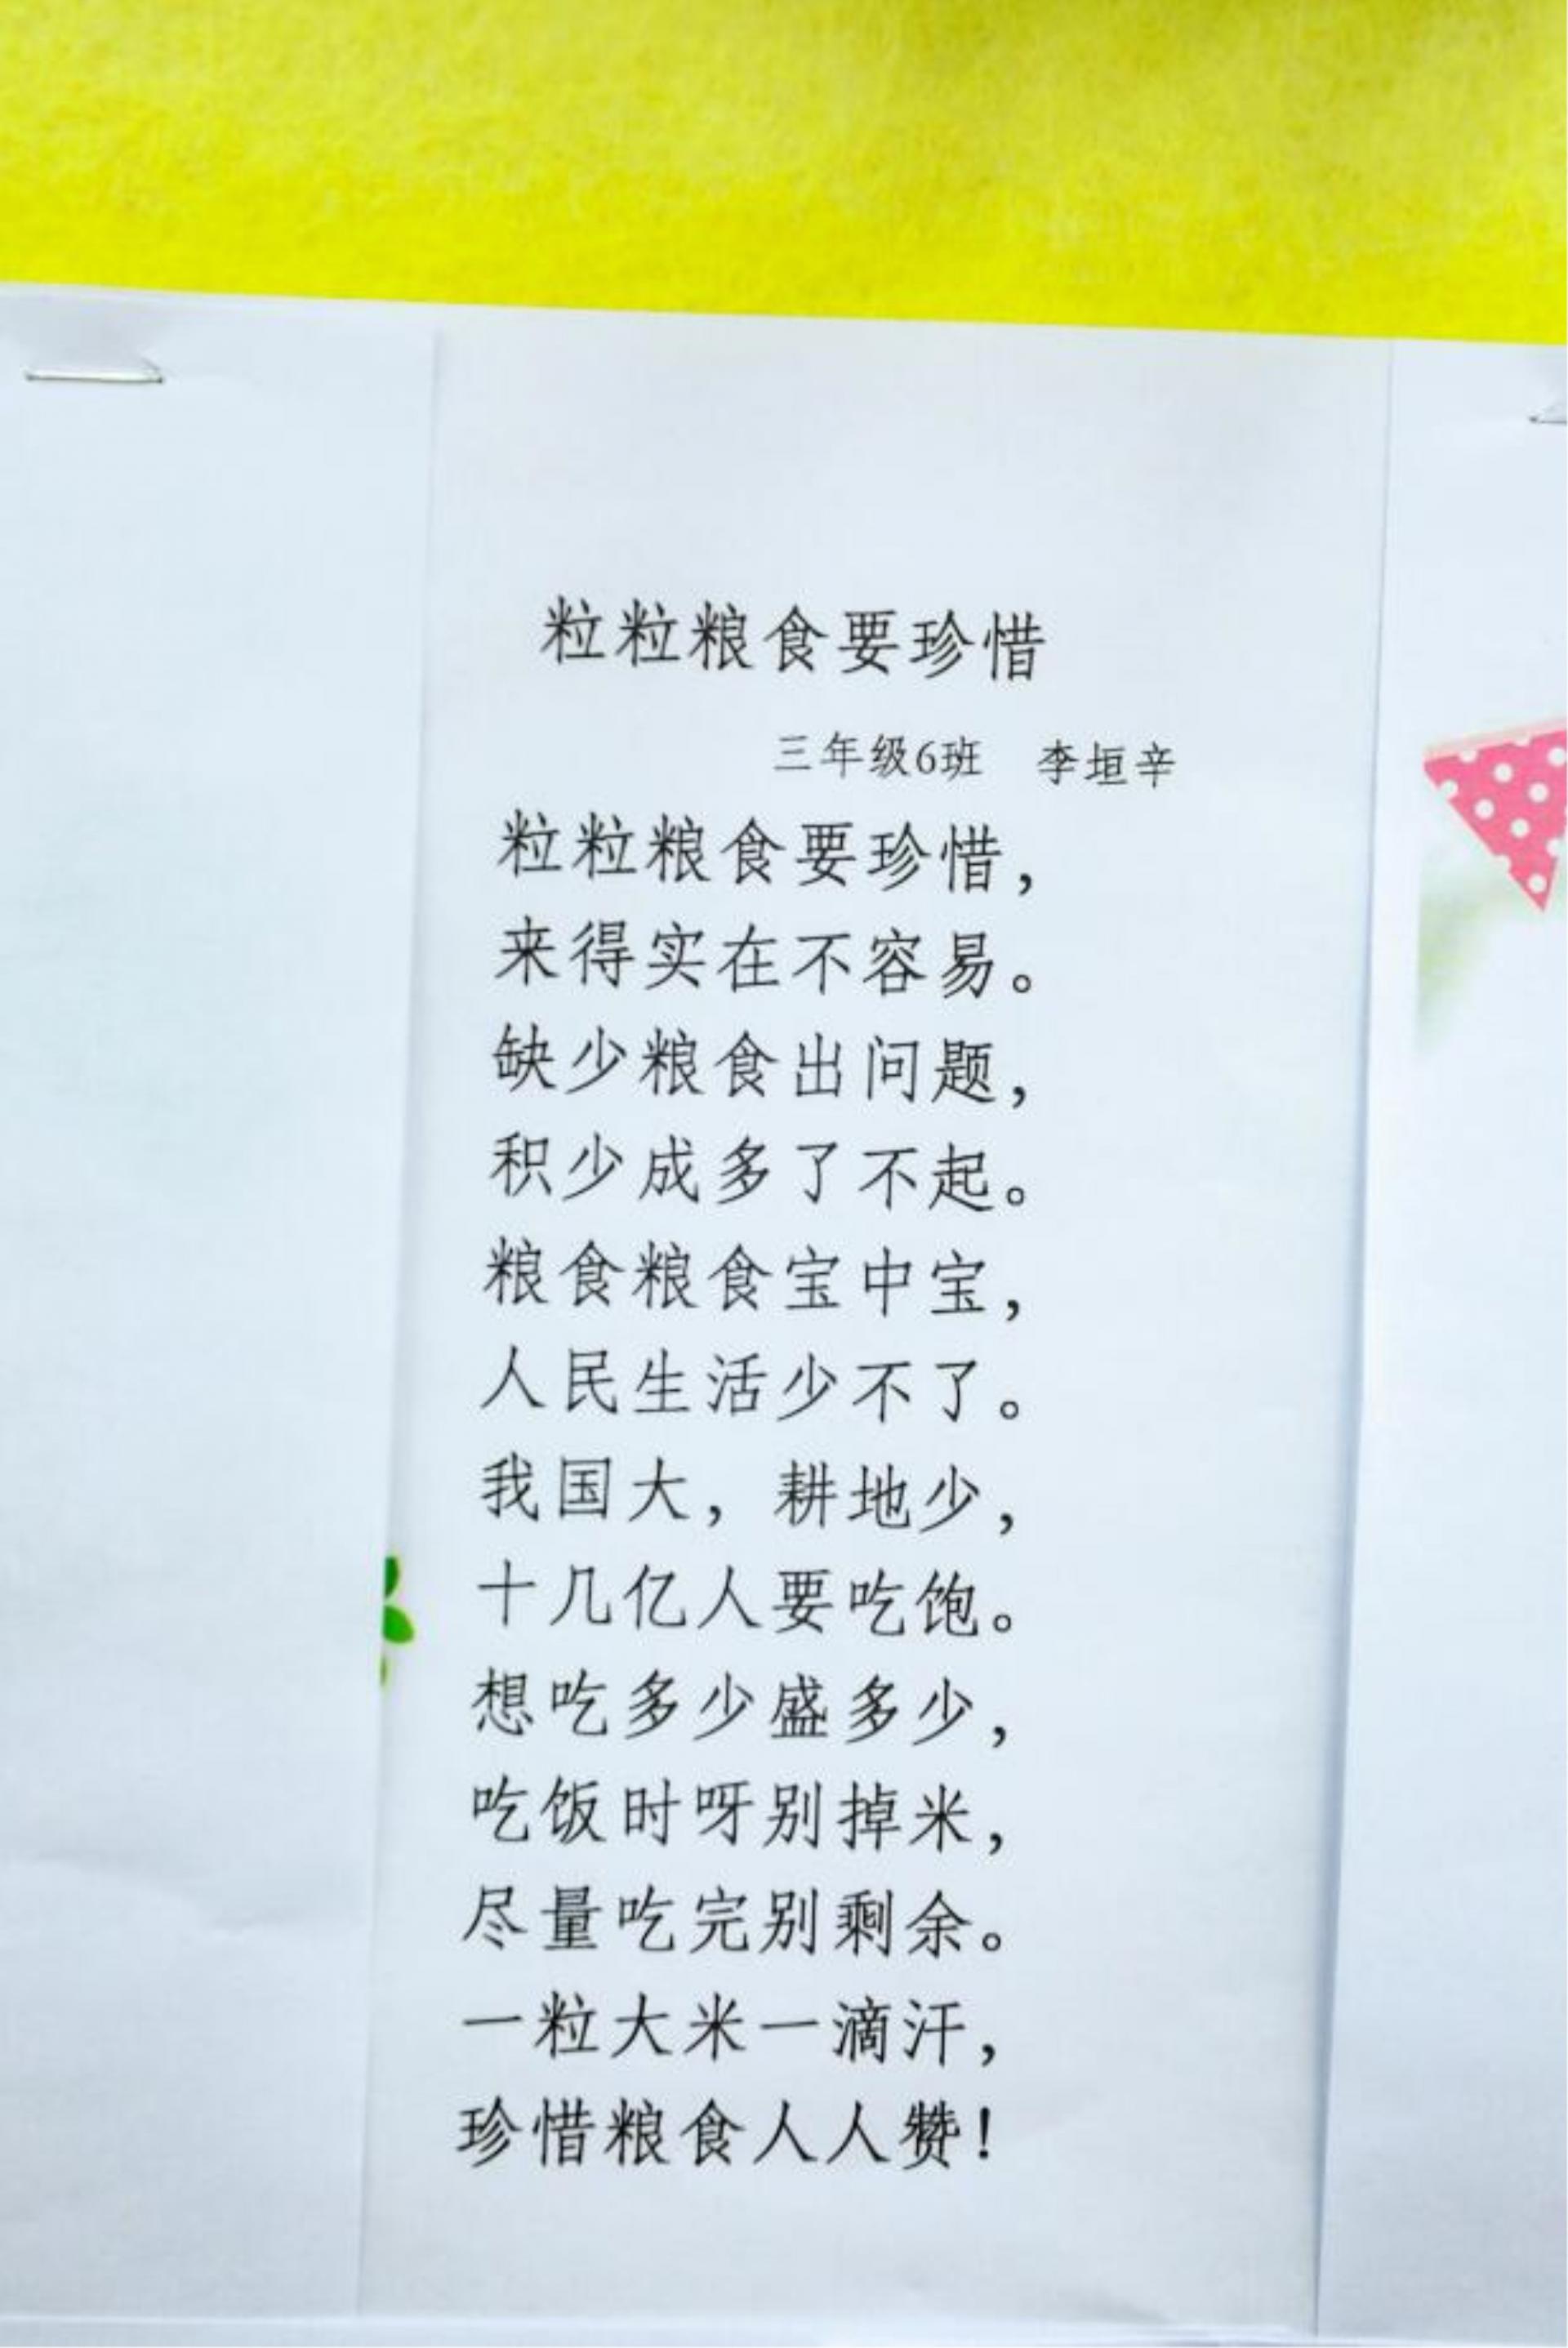 粒粒粮食要珍惜
三年级6班 李垣辛
粒粒粮食要珍惜，
来得实在不容易。
缺少粮食出问题，
积少成多了不起。
粮食粮食宝中宝，
人民生活少不了。
我国大，耕地少，
十几亿人要吃饱。
想吃多少盛多少，
吃饭时呀别掉米，
尽量吃完别剩余。
一粒大米一滴汗，
珍惜粮食人人赞！